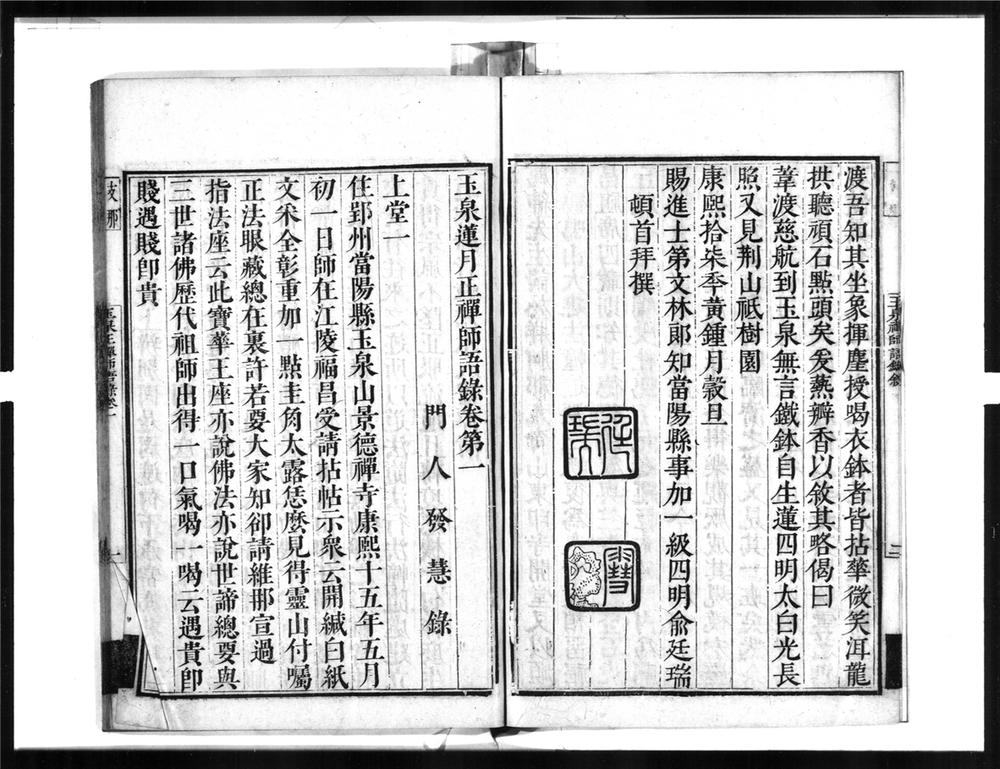 渡吾知其坐象揮塵授喝衣鉢者皆拈華微笑洱龍
拱聽頑石點頭矣爰爇瓣香以敘其略偈曰
葦渡慈航到玉泉無言鐵鉢自生蓮四明太白光長
照又見荆山祗樹園
康熙拾柒季黃鍾月穀旦
賜進士第文林郎知當陽縣事加一級四明兪廷瑞
頓首拜撰
玉泉蓮月正禪師語錄卷第一
門人發慧錄
上堂一
住郢州當陽縣玉泉山景德禪寺康熙十五年五月
初一日師在江陵福昌受請拈帖示衆云開緘白紙
文釆全彰重加一點圭角太露恁麽見得靈山付囑
正法眼藏總在裏許若要大家知卻請維那宣過
指法座云此寶華王座亦說佛法亦說世諦總要與
三世諸佛歷代祖師出得一口氣喝一喝云遇貴卽
賤遇賤卽貴
支那